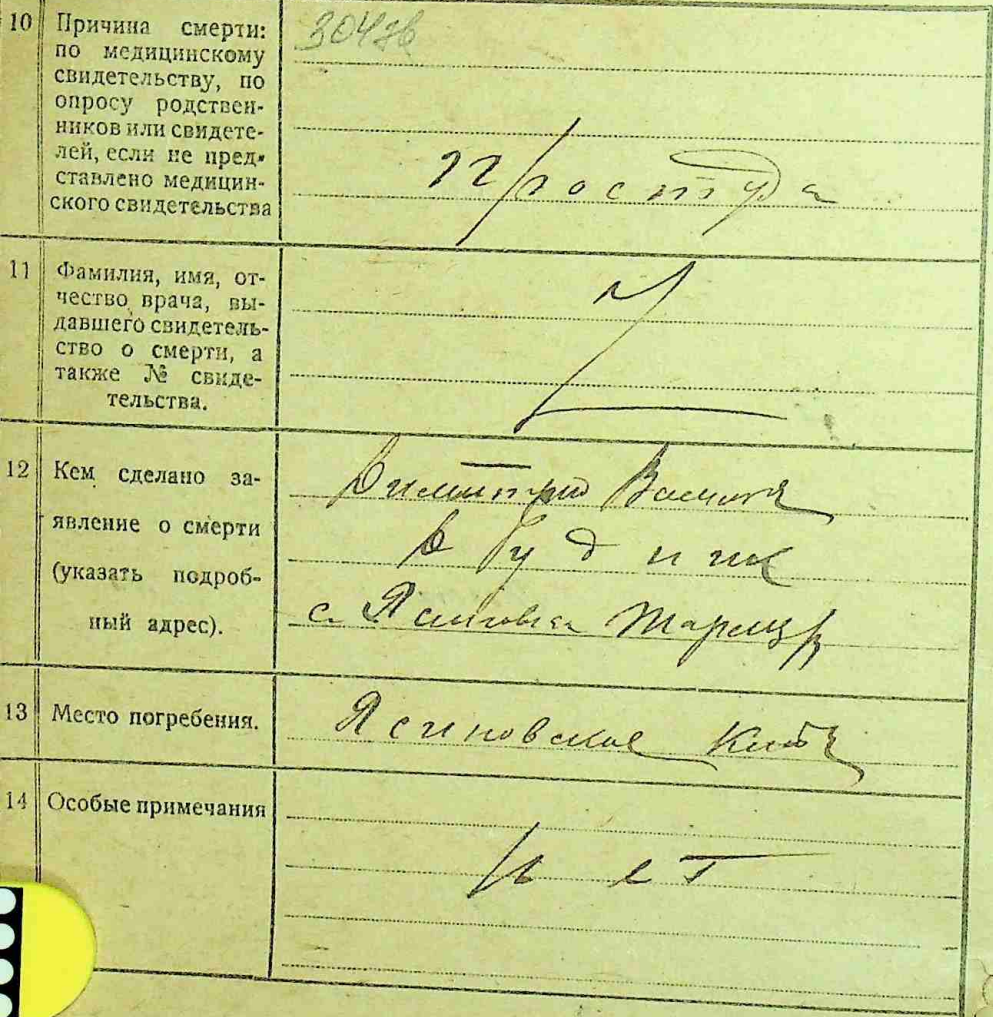 10 Причина смерти:
по медицинскому
свидетельству, по
опросу родствен-
ников или свидете-
лей, если не пред-
ставлено медицин-
ского свидетельства
простуда
11 Фамилия, имя, от-
чество врача, вы-
давшего свидетель-
ство о смерти, а
также № свиде-
тельства.
12 Кем сделано за-
явление о смерти
(указать подроб-
ный адрес).
Димитрий
с
13 Место погребения.
Ясиновское
14 Особые примечания
нет